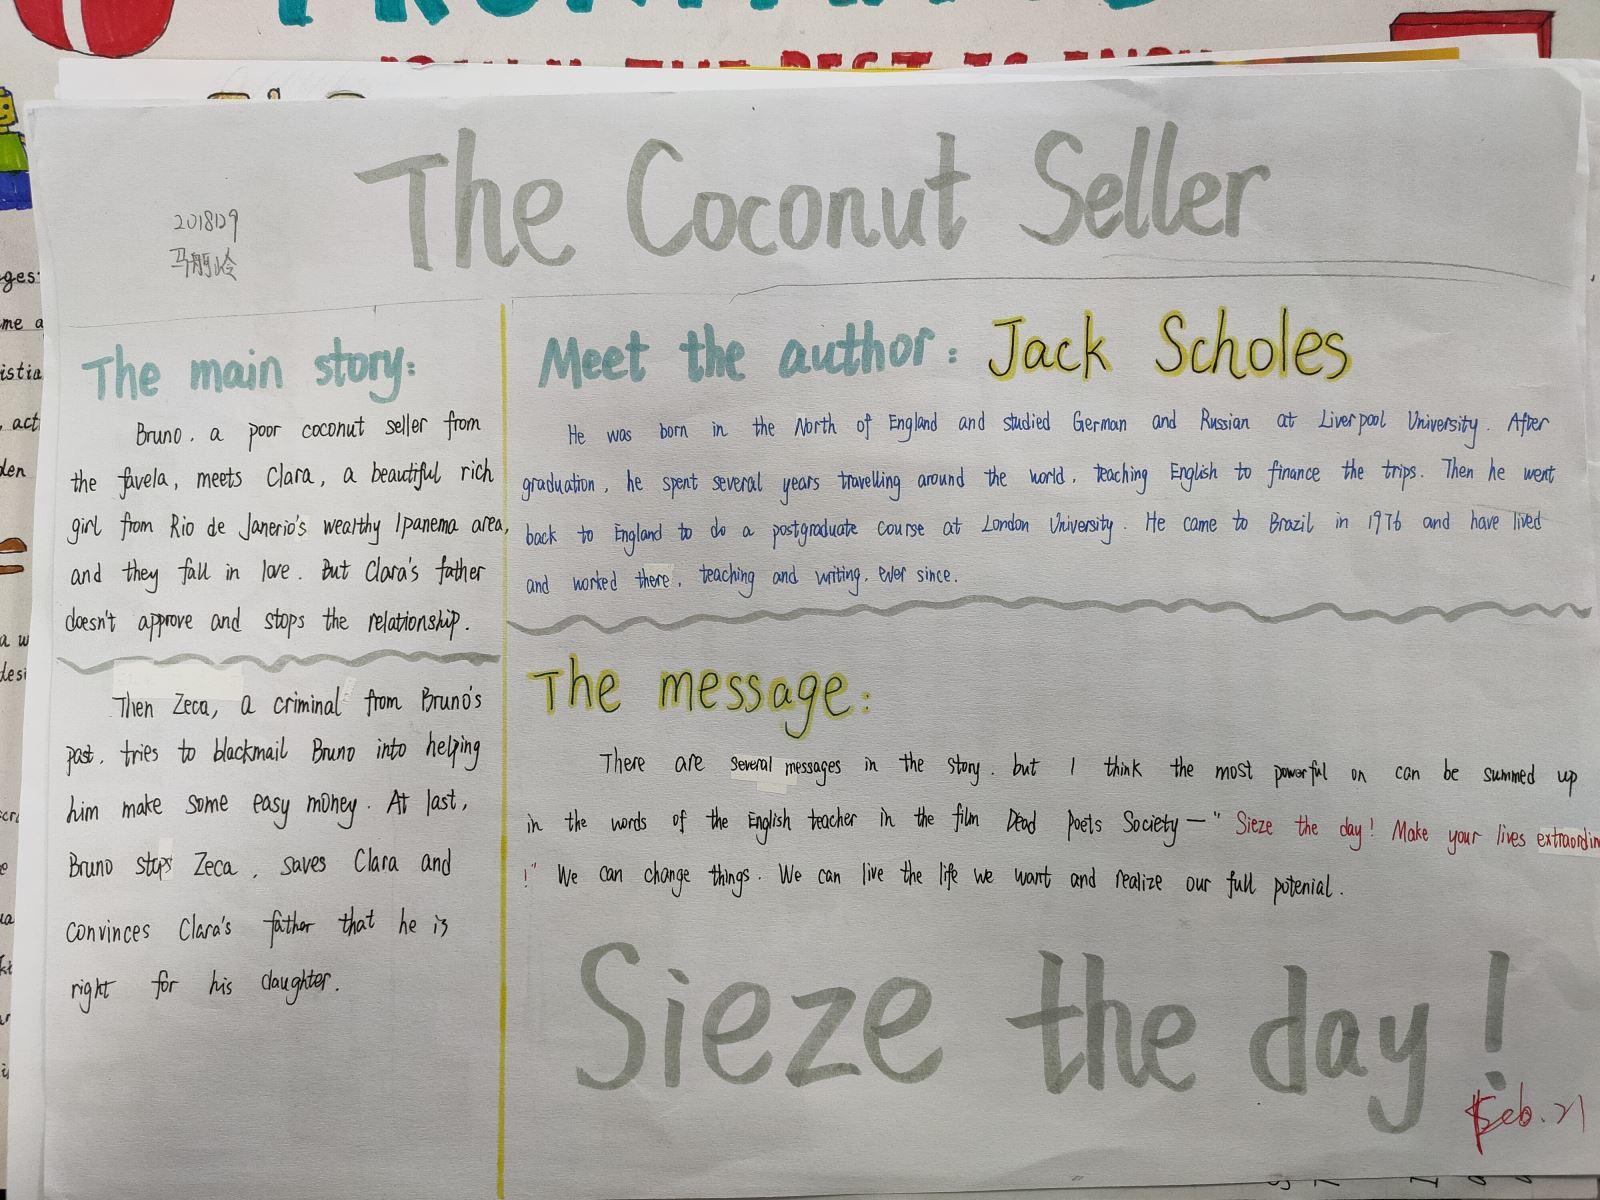 The Coconut Seller
2018129
The main story:
Bruno, a poor coconut seller from
the favela, meets Clara, a beautiful rich
girl from Rio de Janerio's wealthy Ipanema area,
and they fall in love. But Clara's father
doesn't approve and stops the relationship.
Then Zeca, a criminal from Bruno's
past, tries to blackmail Bruno into helping
him make some easy money. At last,
Bruno stops Zeca, saves Clara and
convinces Clara's father that he is
right for his daughter.
Meet the author: Jack Scholes
He was born in the North of England and studied German and Russian at Liverpool University. After
graduation, he spent several years travelling around the world, teaching English to finance the trips. Then he went
back to England to do a postgraduate course at London University. He came to Brazil in 1976 and have lived
and worked there, teaching and writing, ever since.
The message:
There are several messages in the story, but I think the most powerful on can be summed up
in the words of the English teacher in the film Dead Poets Society—"Sieze the day! Make your lives extraordin
!" We can change things. We can live the life we want and realize our full potenial.
Sieze the day!
Feb. 21